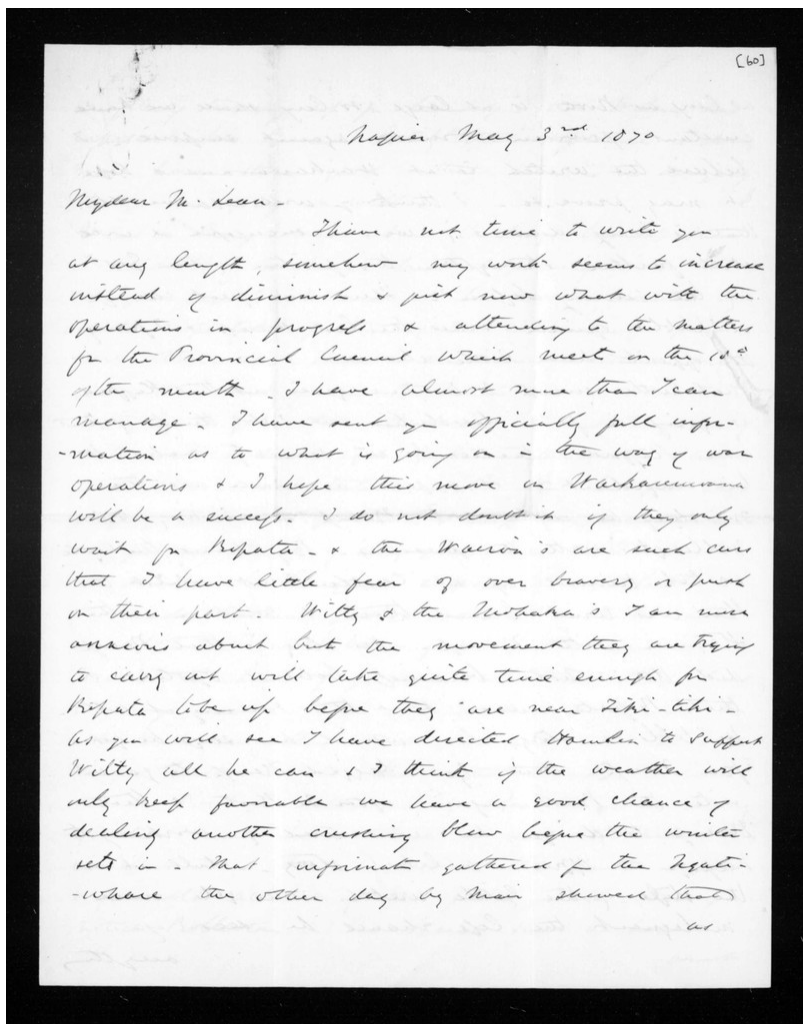 [60]
Napier May 3rd 1870
My dear McLean -
I have not time to write you
at any length, somehow my work seems to increase
instead of diminish & just now what with the
operations in progress & attending to the matters
for the Provincial Council which meet on the 10th
of the month - I have almost more than I can
manage - I have sent you officially full infor-
-mation as to what is going on in the way of war
operations & I hope this move on Waikaremoana
will be a success - I do not doubt it if they only
wait for Ropata - & the Wairoa's are such curs
that I have little fear of over bravery or push
on their part. Witty & the Mohaka's I am more
anxious about but the movement they are trying
to carry out will take quite time enough for
Ropata to be up before they are near Tiki-tiki -
As you will see I have directed Hamlin to support
Witty all he can & I think if the weather will
only keep favorable we have a good chance of
dealing another crushing blow before the winter
sets in - That informat gathered fr the Ngati-
-whare the other day by Mair shewed that
as